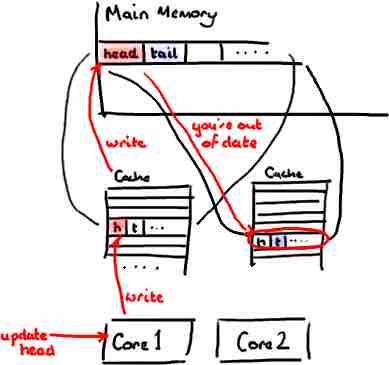 Main Memory
head tail ....
you're out
of date
write
Cache
Cache
h t ...
h t ....
....
write
update
head
Core 1
Core 2